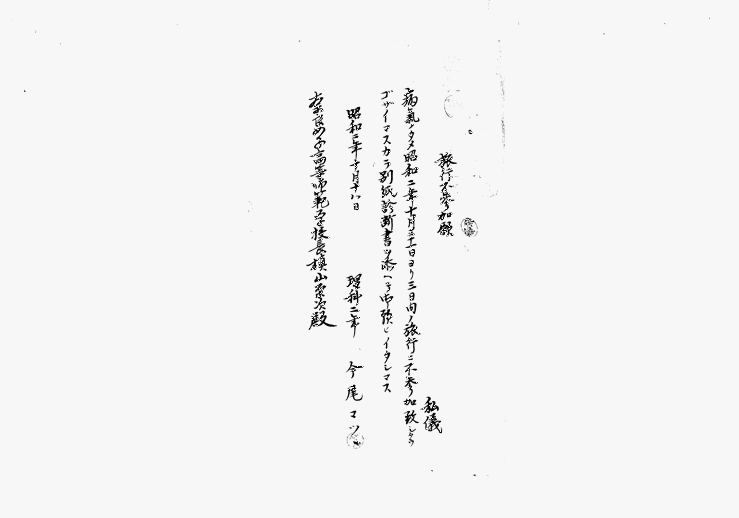 旅行不参加願
私儀
病氣ノタメ昭和二年十月三十一日ヨリ三日間ノ旅行ニ不参加致シタウ
ゴザイマスカラ別紙診断書ヲ添ヘテ御願ヒイタシマス
昭和二年十月十八日
理科二年 今尾マツ
奈良女子高等師範学校長槇山栄次殿